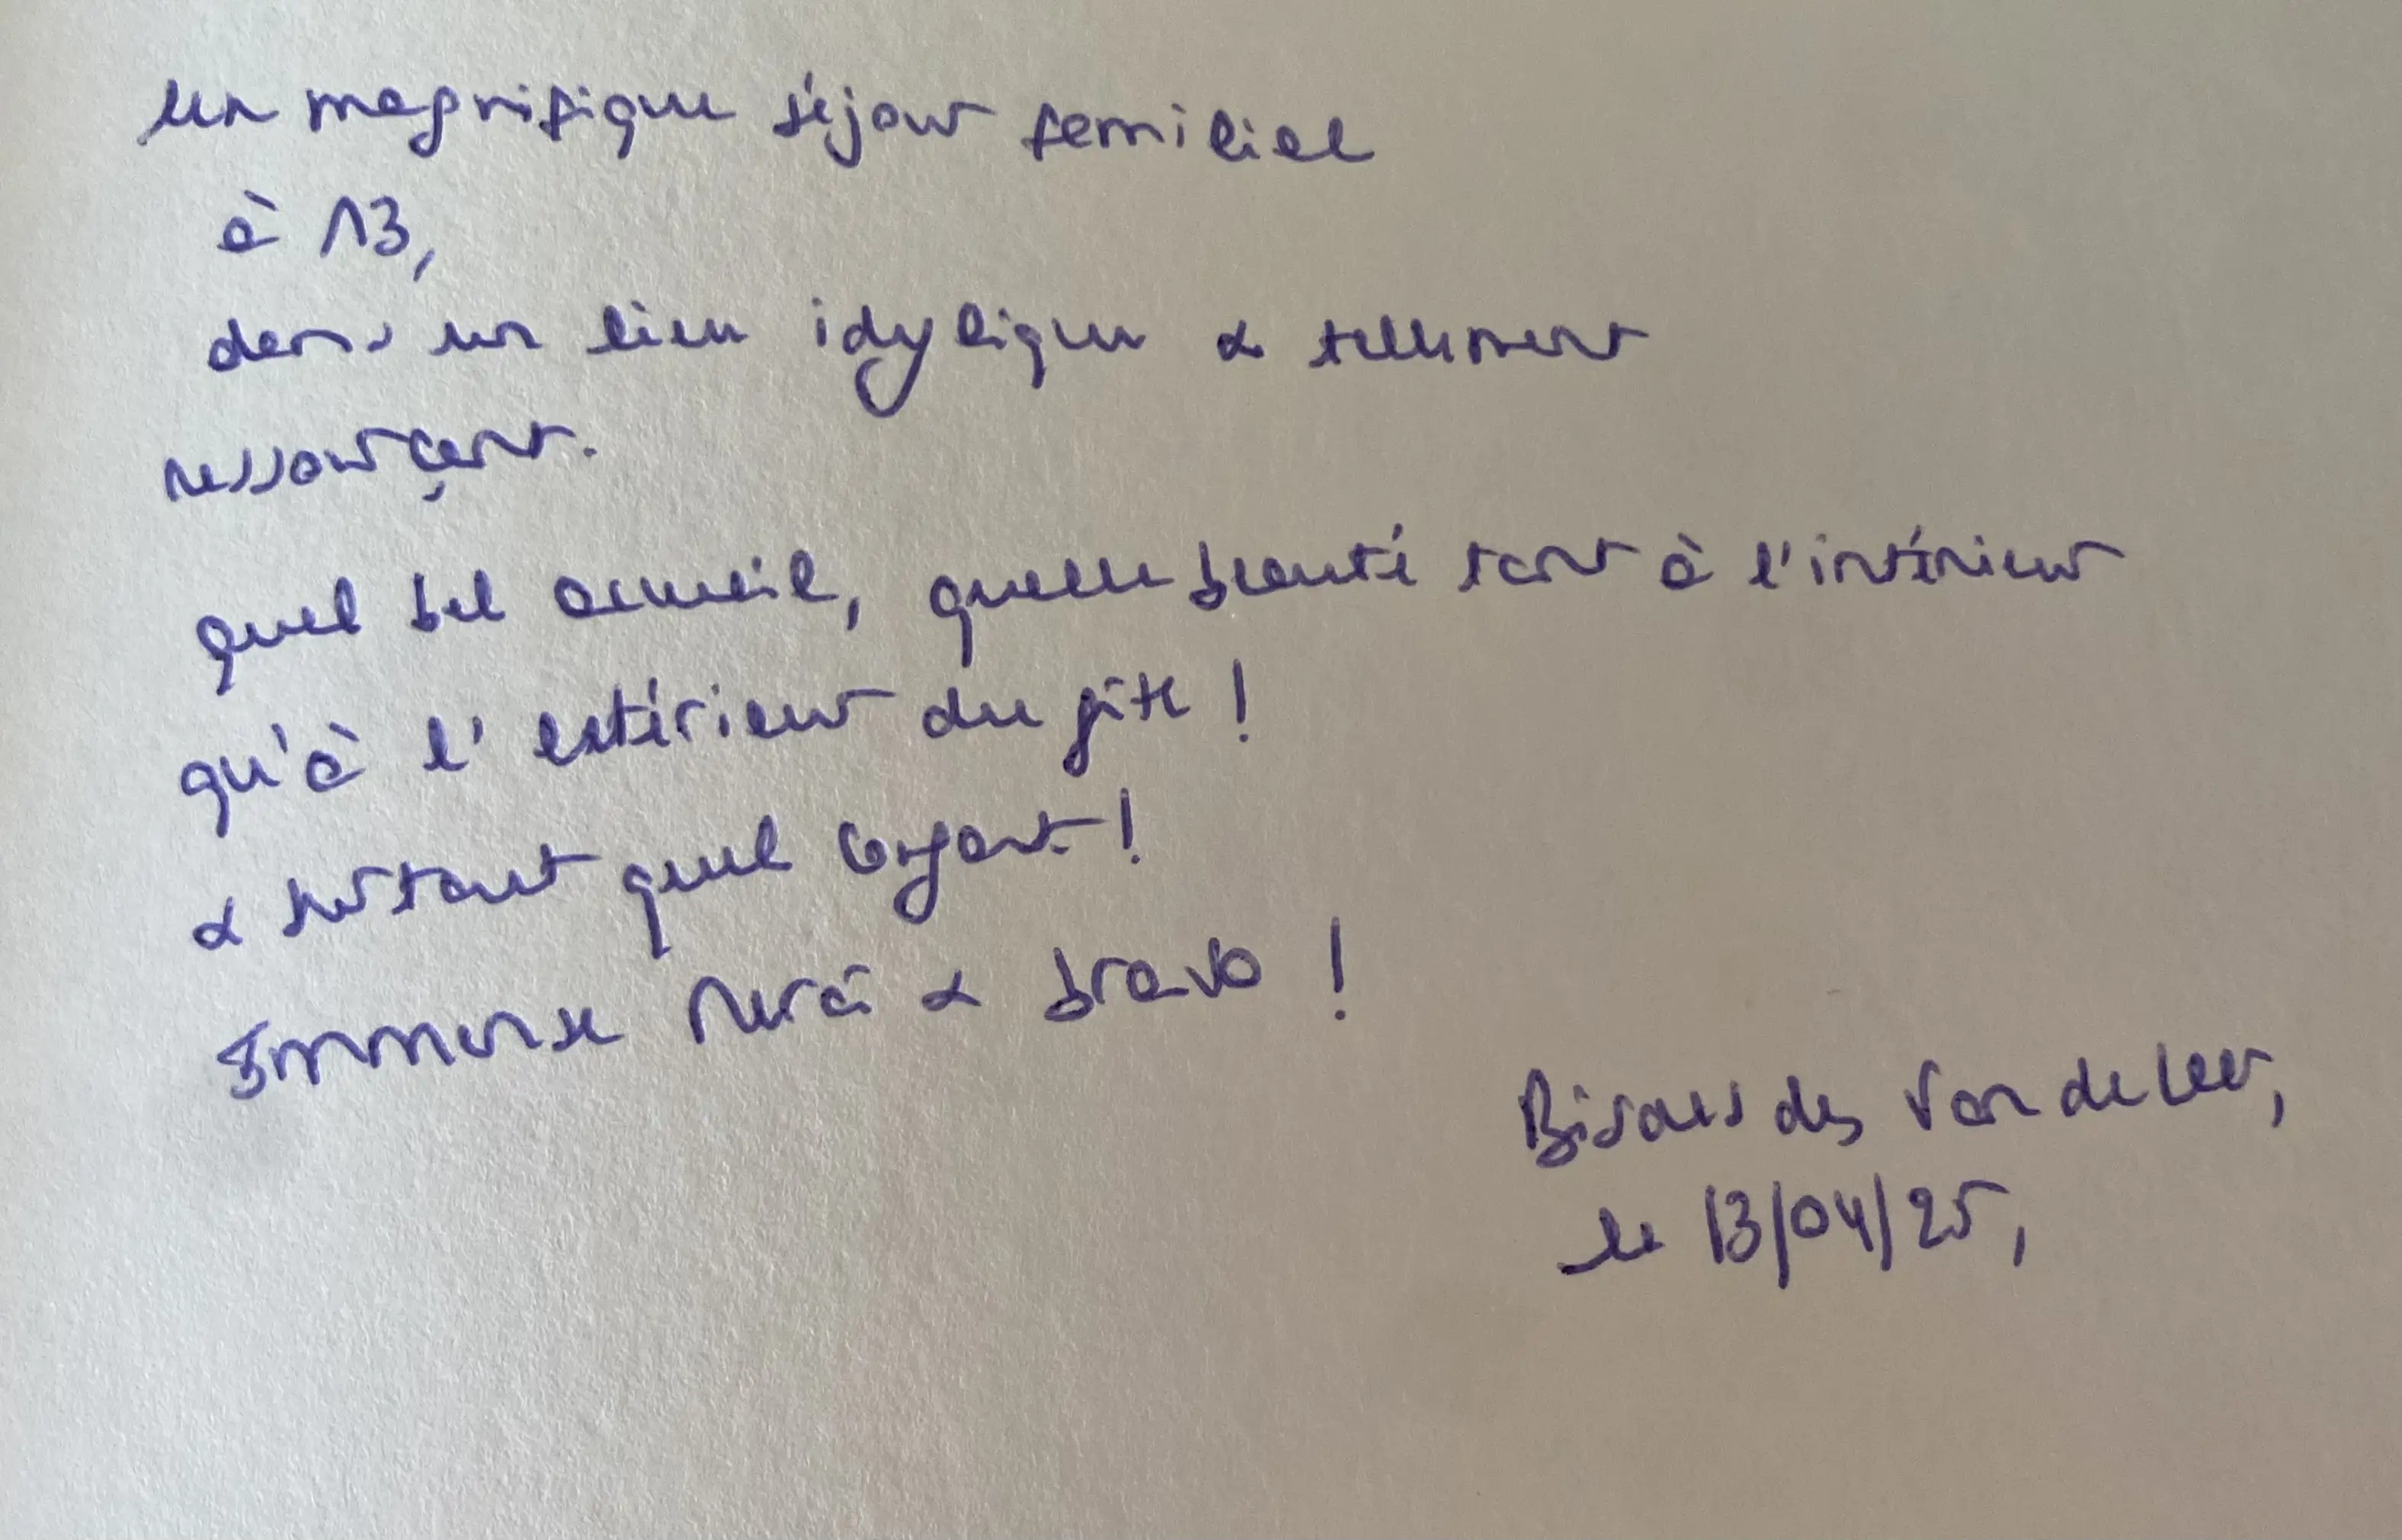 Un magnifique séjour familial
à 13,
dans un lieu idylique & tellement
ressourçant.
quel bel accueil, quelle beauté tant à l'intérieur
qu'à l'extérieur du gîte !
& surtout quel confort !
Immense Merci & bravo !
Bisous des
le 13/04/25,